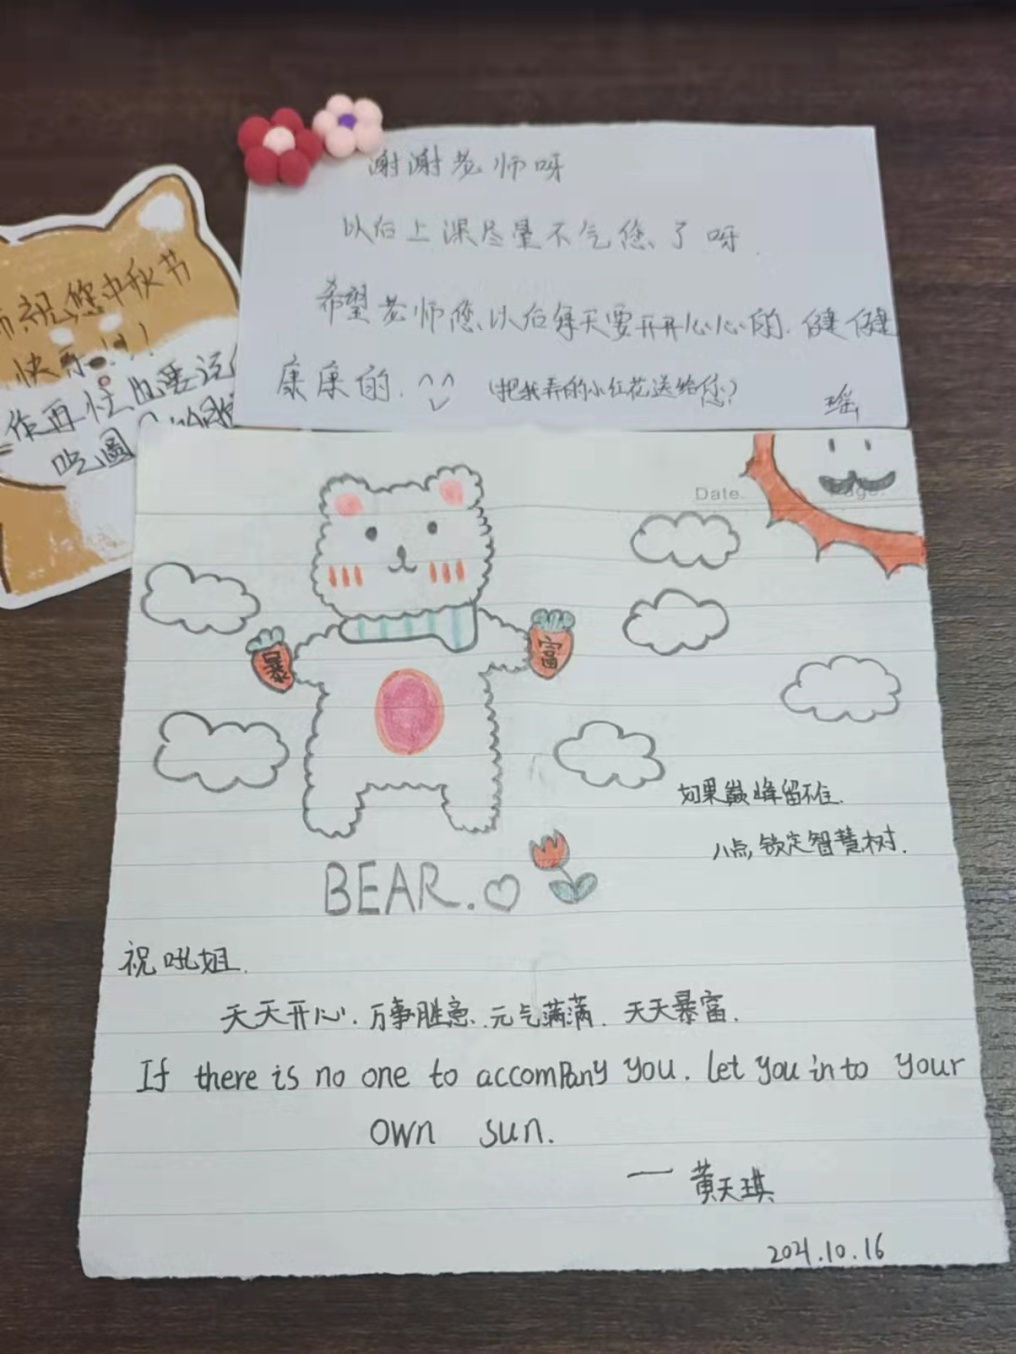 谢谢老师呀
以后上课尽量不气您了呀.
希望老师您以后每天要开开心心的.健健
康康的.^^
(把我弄的小红花送给您?)
瑶
祝您中秋节
快乐!!!
作再忙也要记
吃圆
Date.
暴
富
如果巅峰留不住.
八点,锁定智慧树.
BEAR.♡
祝吼姐.
天天开心.万事胜意.元气满满.天天暴富.
If there is no one to accompany you. let you into your
own sun.
—黄天琪
2021.10.16